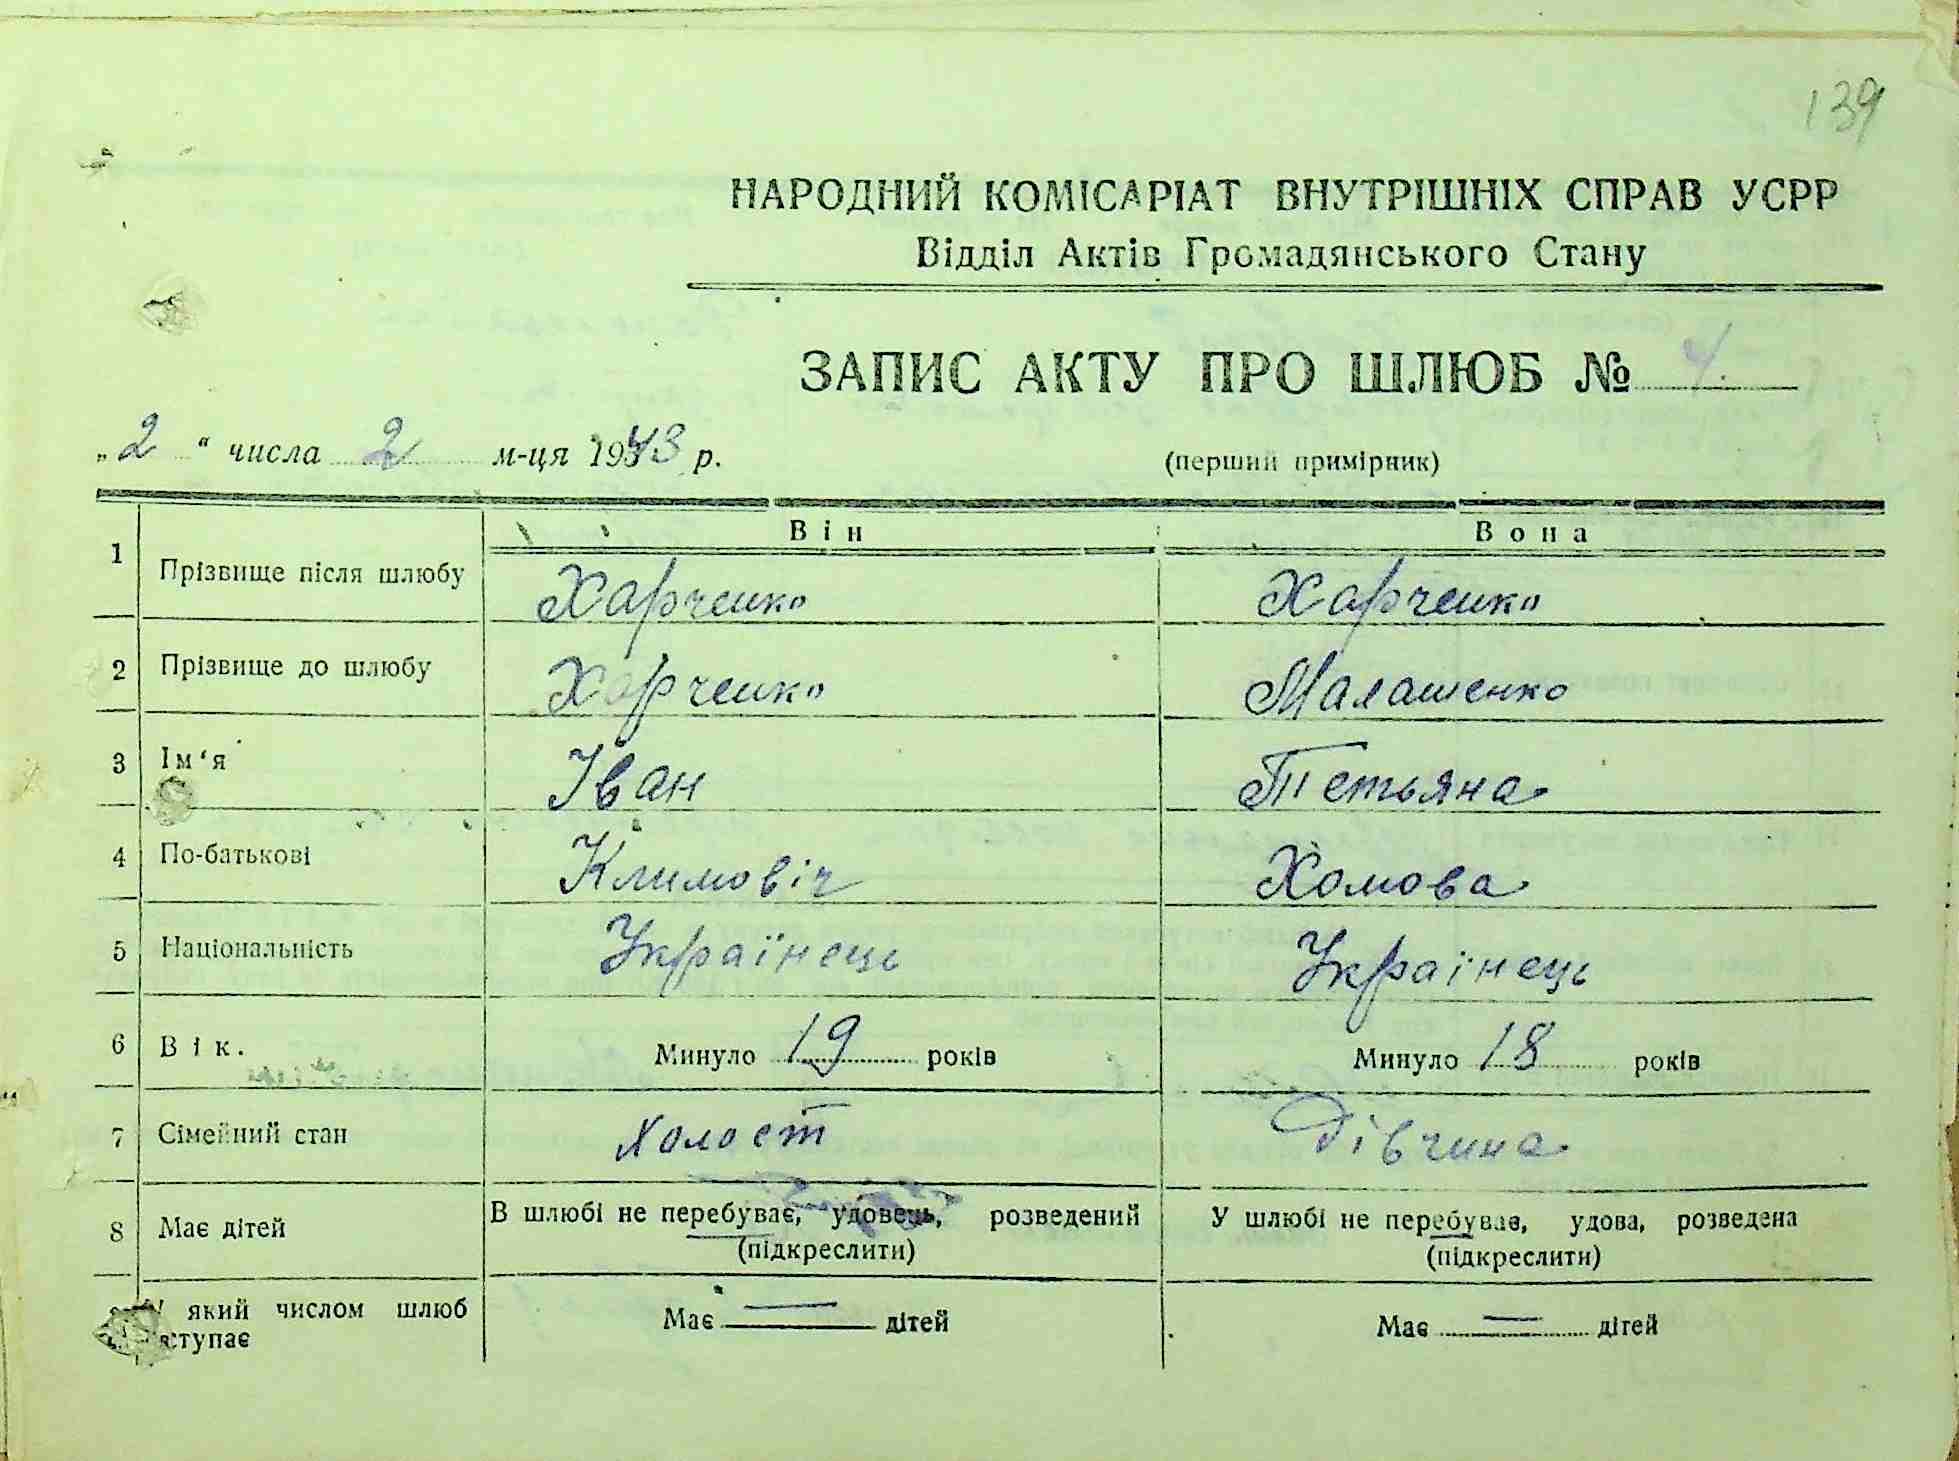 139
НАРОДНИЙ КОМІСАРІАТ ВНУТРІШНІХ СПРАВ УСРР
Відділ Актів Громадянського Стану
ЗАПИС АКТУ ПРО ШЛЮБ № 4.
„2“ числа 2 м-ця 1943 р.
(перший примірник)
Він Вона
1 Прізвище після шлюбу Харченко Харченко
2 Прізвище до шлюбу Харченко Малашенко
3 Ім‘я Іван Тетьяна
4 По-батькові Климовіч Хомова
5 Національність Українець Українець
6 Вік. Минуло 19 років Минуло 18 років
7 Сімейний стан холост дівчина
8 Має дітей В шлюбі не перебуває, удовець, розведений У шлюбі не перебуває, удова, розведена
(підкреслити) (підкреслити)
який числом шлюб Має — дітей Має — дітей
вступає